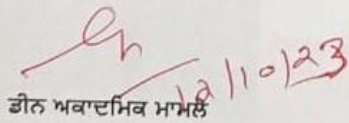 12/10/23
ਡੀਨ ਅਕਾਦਮਿਕ ਮਾਮਲੇ